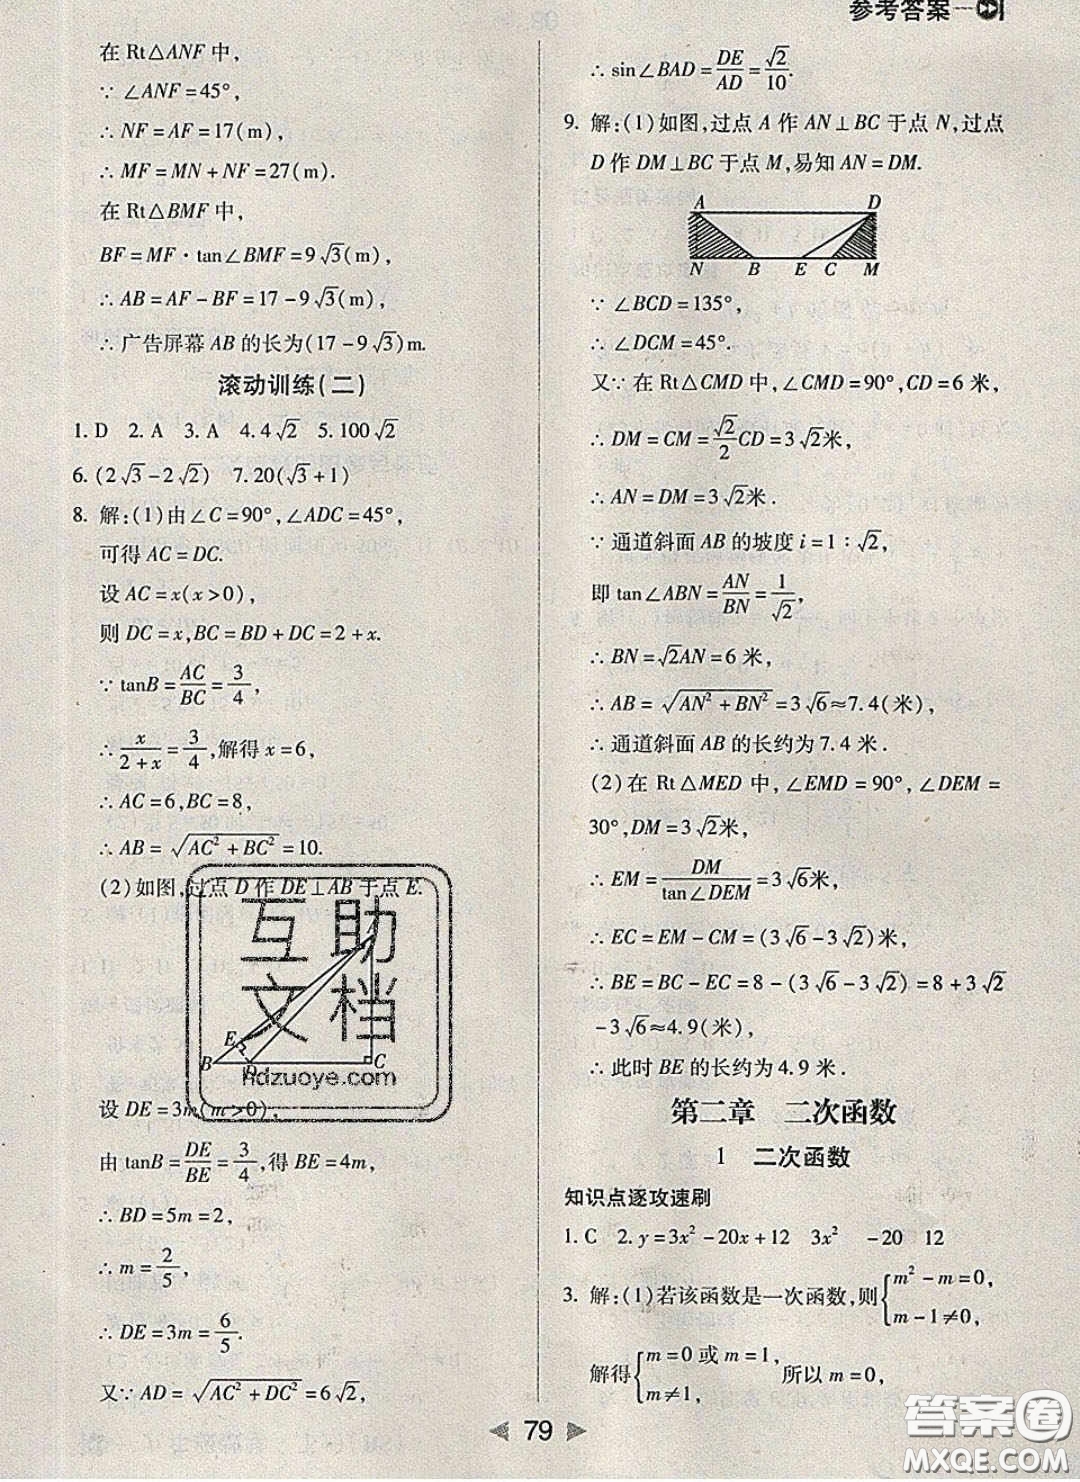 参考答案
在 Rt△ANF 中,
∵ ∠ANF=45°,
∴ NF=AF=17(m),
∴ MF=MN+NF=27(m).
在 Rt△BMF 中,
BF=MF·tan∠BMF=9√3(m),
∴ AB=AF-BF=17-9√3(m),
∴ 广告屏幕 AB 的长为(17-9√3)m.
滚动训练(二)
1. D 2. A 3. A 4. 4√2 5. 100√2
6. (2√3-2√2) 7. 20(√3+1)
8. 解:(1)由∠C=90°,∠ADC=45°,
可得 AC=DC.
设 AC=x(x>0),
则 DC=x,BC=BD+DC=2+x.
∵ tanB=AC/BC=3/4,
∴ x/(2+x)=3/4,解得 x=6,
∴ AC=6,BC=8,
∴ AB=√(AC²+BC²)=10.
(2)如图,过点 D 作 DE⊥AB 于点 E.
A
E
B D C
设 DE=3m(m>0),
由 tanB=DE/BE=3/4,得 BE=4m,
∴ BD=5m=2,
∴ m=2/5,
∴ DE=3m=6/5.
又∵ AD=√(AC²+DC²)=6√2,
∴ sin∠BAD=DE/AD=√2/10.
9. 解:(1)如图,过点 A 作 AN⊥BC 于点 N,过点
D 作 DM⊥BC 于点 M,易知 AN=DM.
A D
N B E C M
∵ ∠BCD=135°,
∴ ∠DCM=45°.
又∵ 在 Rt△CMD 中,∠CMD=90°,CD=6 米,
∴ DM=CM=√2/2CD=3√2米,
∴ AN=DM=3√2米.
∵ 通道斜面 AB 的坡度 i=1∶√2,
即 tan∠ABN=AN/BN=1/√2,
∴ BN=√2AN=6 米,
∴ AB=√(AN²+BN²)=3√6≈7.4(米),
∴ 通道斜面 AB 的长约为 7.4 米.
(2)在 Rt△MED 中,∠EMD=90°,∠DEM=
30°,DM=3√2米,
∴ EM=DM/tan∠DEM=3√6米,
∴ EC=EM-CM=(3√6-3√2)米,
∴ BE=BC-EC=8-(3√6-3√2)=8+3√2
-3√6≈4.9(米),
∴ 此时 BE 的长约为 4.9 米.
第二章 二次函数
1 二次函数
知识点逐攻速刷
1. C 2. y=3x²-20x+12 3x² -20 12
3. 解:(1)若该函数是一次函数,则{m²-m=0,
m-1≠0,
解得{m=0 或 m=1,
m≠1,
所以 m=0.
79
互助
文档
hdzuoye.com
答案圈
MXQE.COM